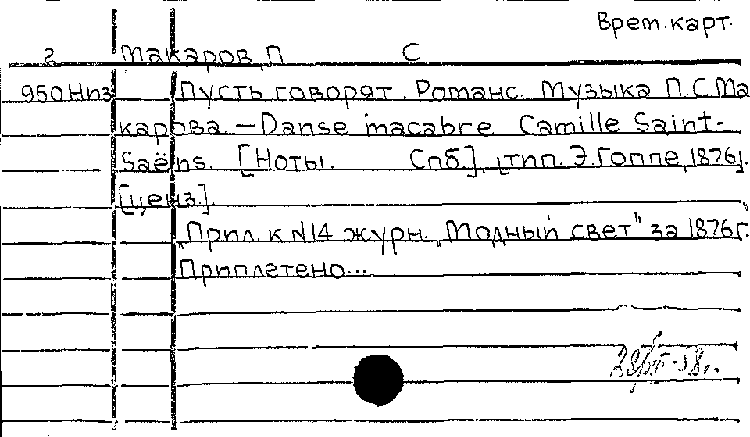 Врем. карт.
2 Макаров, П С
950 Нпз Пусть говорят. Романс. Музыка П.С. Ма
карова. — Danse macabre Camille Saint-
Saëns. [Ноты. Спб.], тип. Э. Гоппе, 1876].
[ценз.].
Прил. к №14 журн. „Модный свет" за 1876 г.
Приплетено...